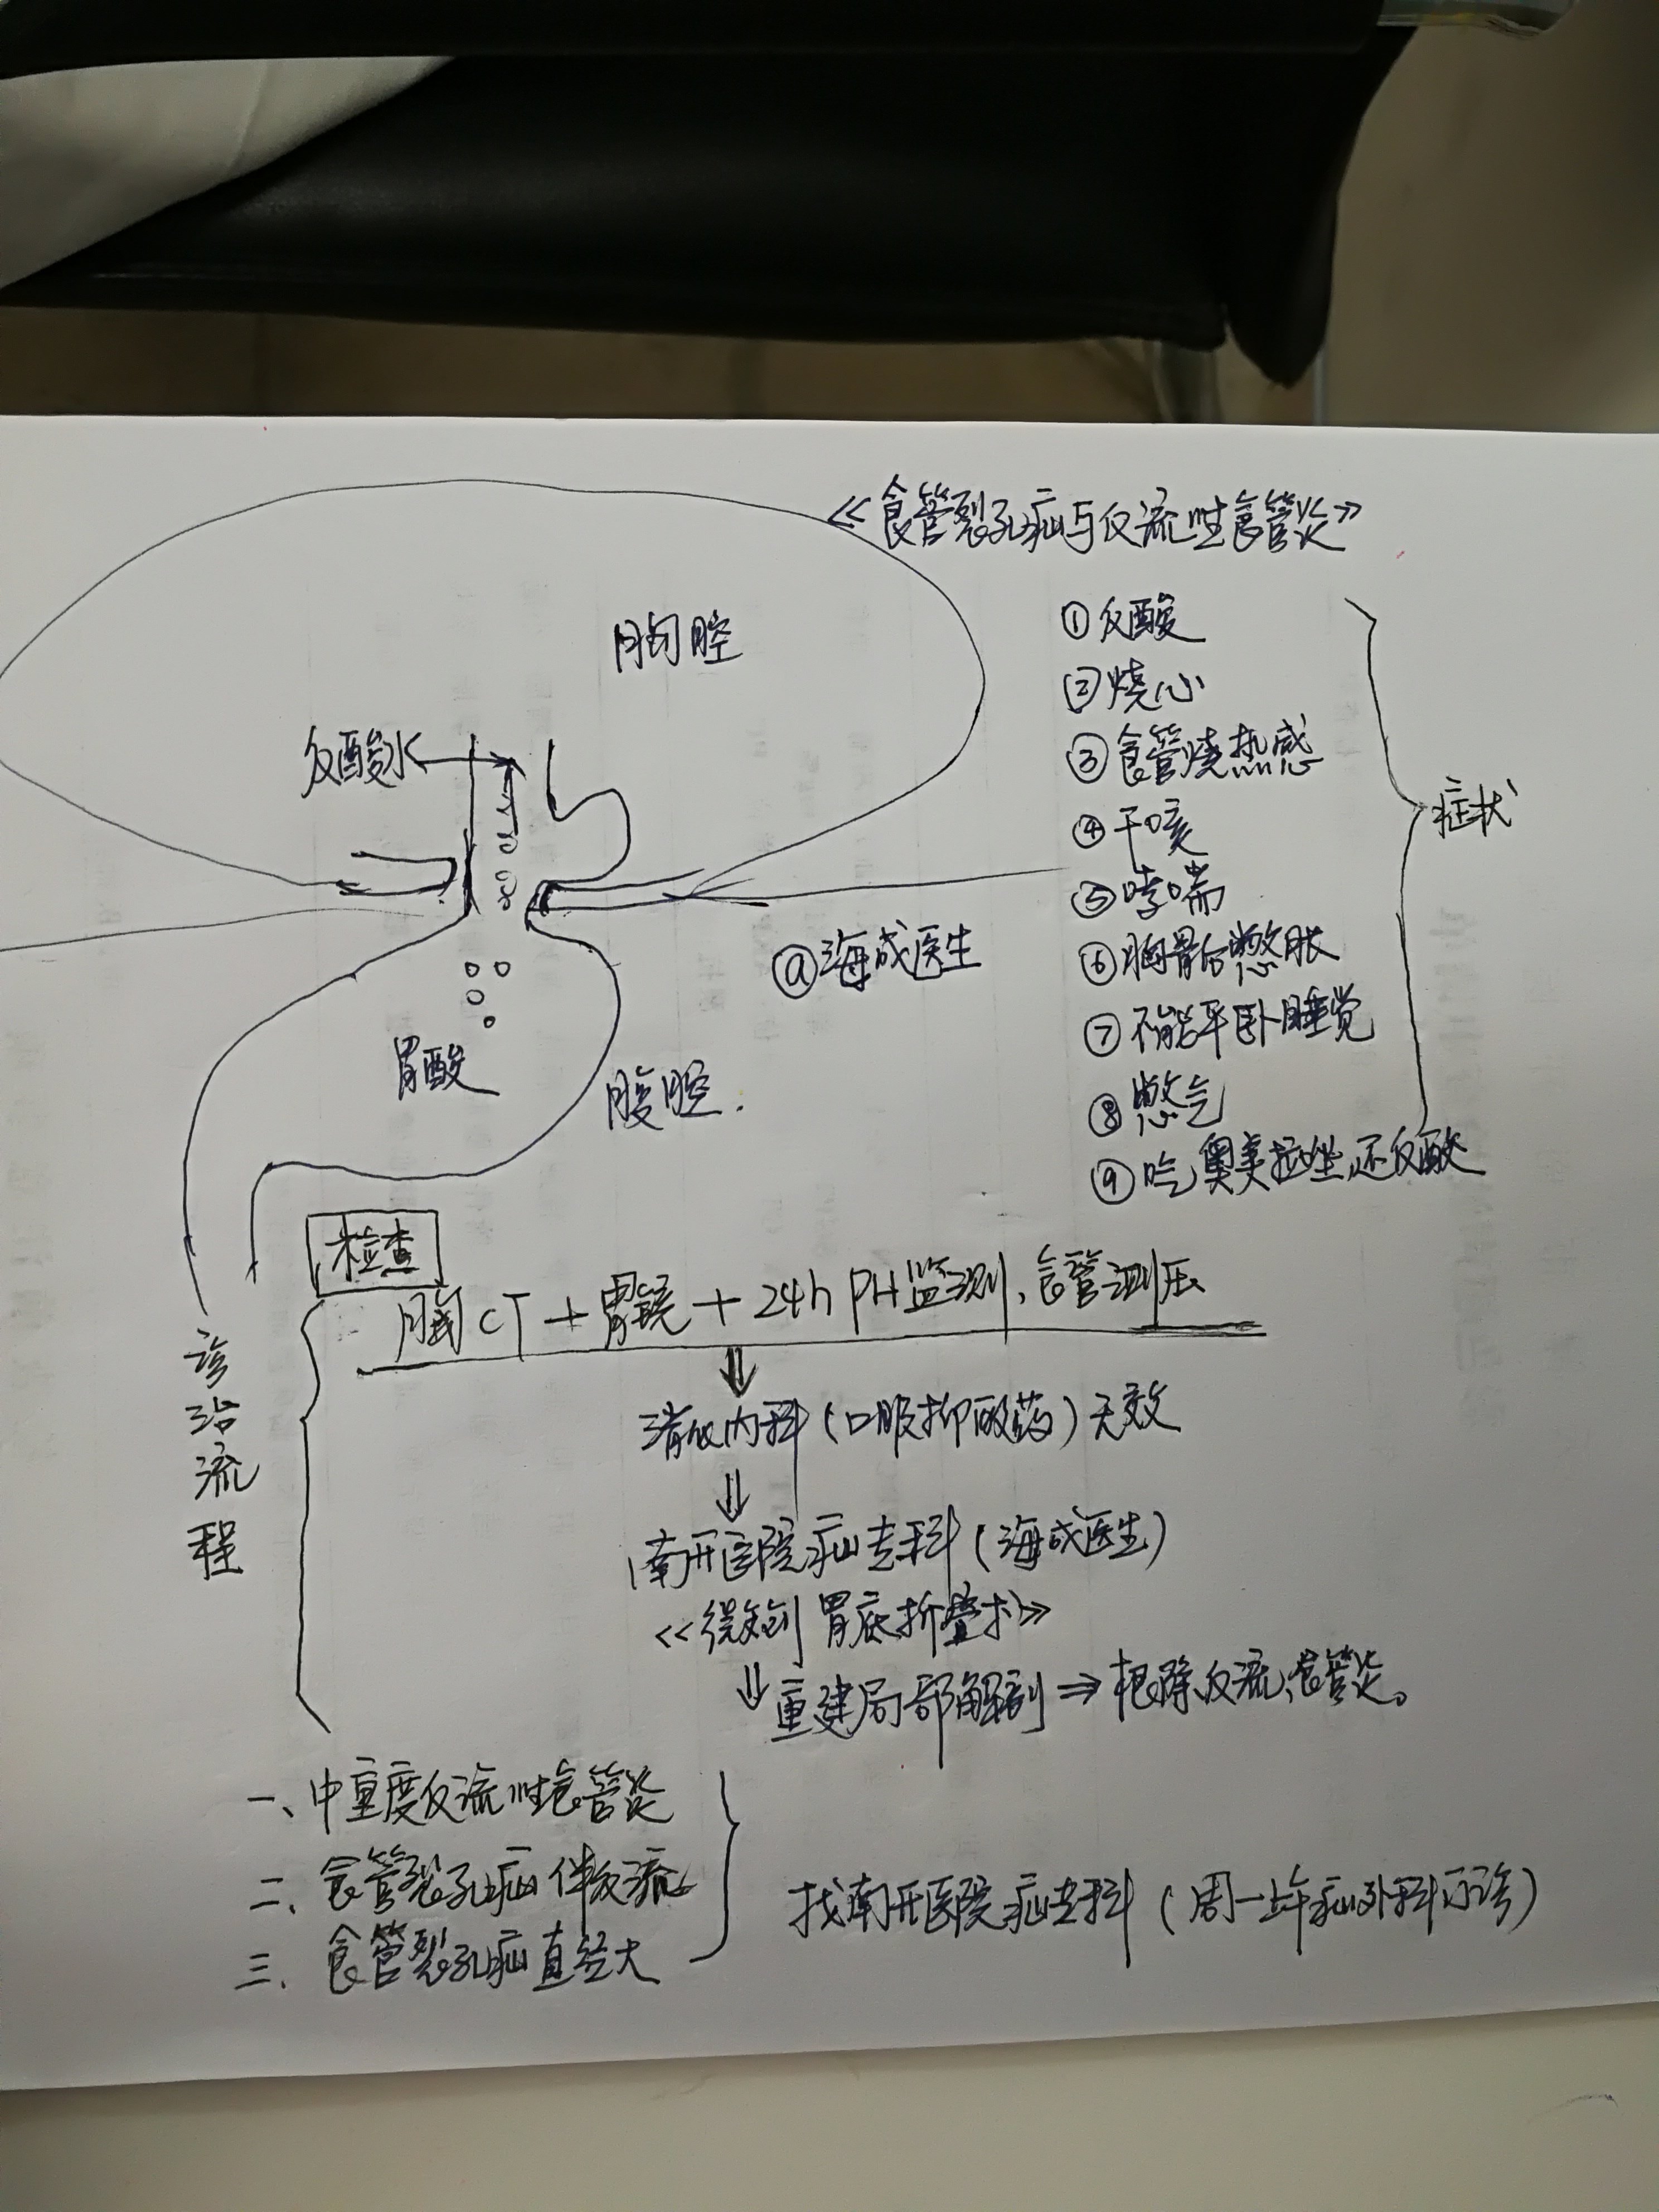 《食管裂孔疝与反流性食管炎》
胸腔
反酸水
胃酸
腹腔.
@海成医生
①反酸
②烧心
③食管烧热感
④干咳
⑤哮喘
⑥胸骨后憋胀
⑦不能平卧睡觉
⑧憋气
⑨吃奥美拉唑还反酸
症状
检查
胸CT+胃镜+24h PH监测、食管测压
⇓
消化内科(口服抑酸药)无效
⇓
南开医院疝专科(海成医生)
《微创胃底折叠术》
⇓重建局部解剖⇒根除反流、食管炎。
诊治流程
一、中重度反流性食管炎
二、食管裂孔疝伴反流
三、食管裂孔疝直径大
找南开医院疝专科(周一上午疝外科门诊)